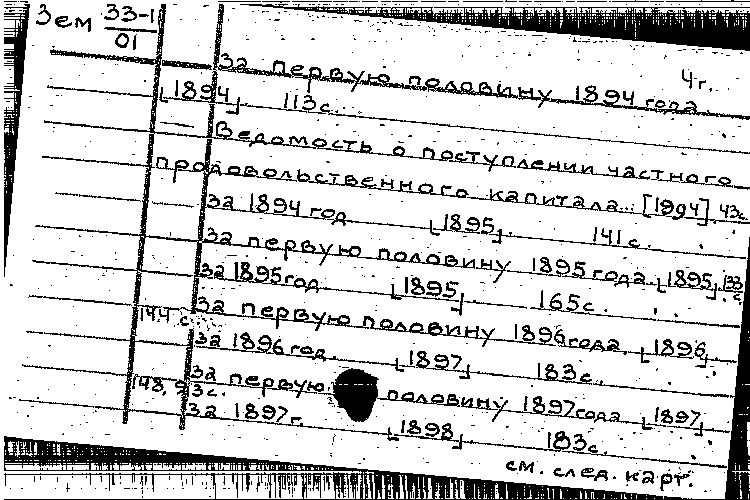 Зем 33-1
01
4 г.
За первую половину 1894 года.
[1894]. 113 с.
— Ведомость о поступлении частного
продовольственного капитала... [1994] 43с.
— За 1894 год. [1895]. 141 с.
За первую половину 1895 года. [1895]. 133 с
За 1895 год. [1895]. 165 с.
144 с. За первую половину 1896 года. [1896].
За 1896 год. [1897]. 183 с.
148, 93 с. За первую половину 1897 года [1897]
За 1897 г. [1898]. 183 с.
см. след. карт.